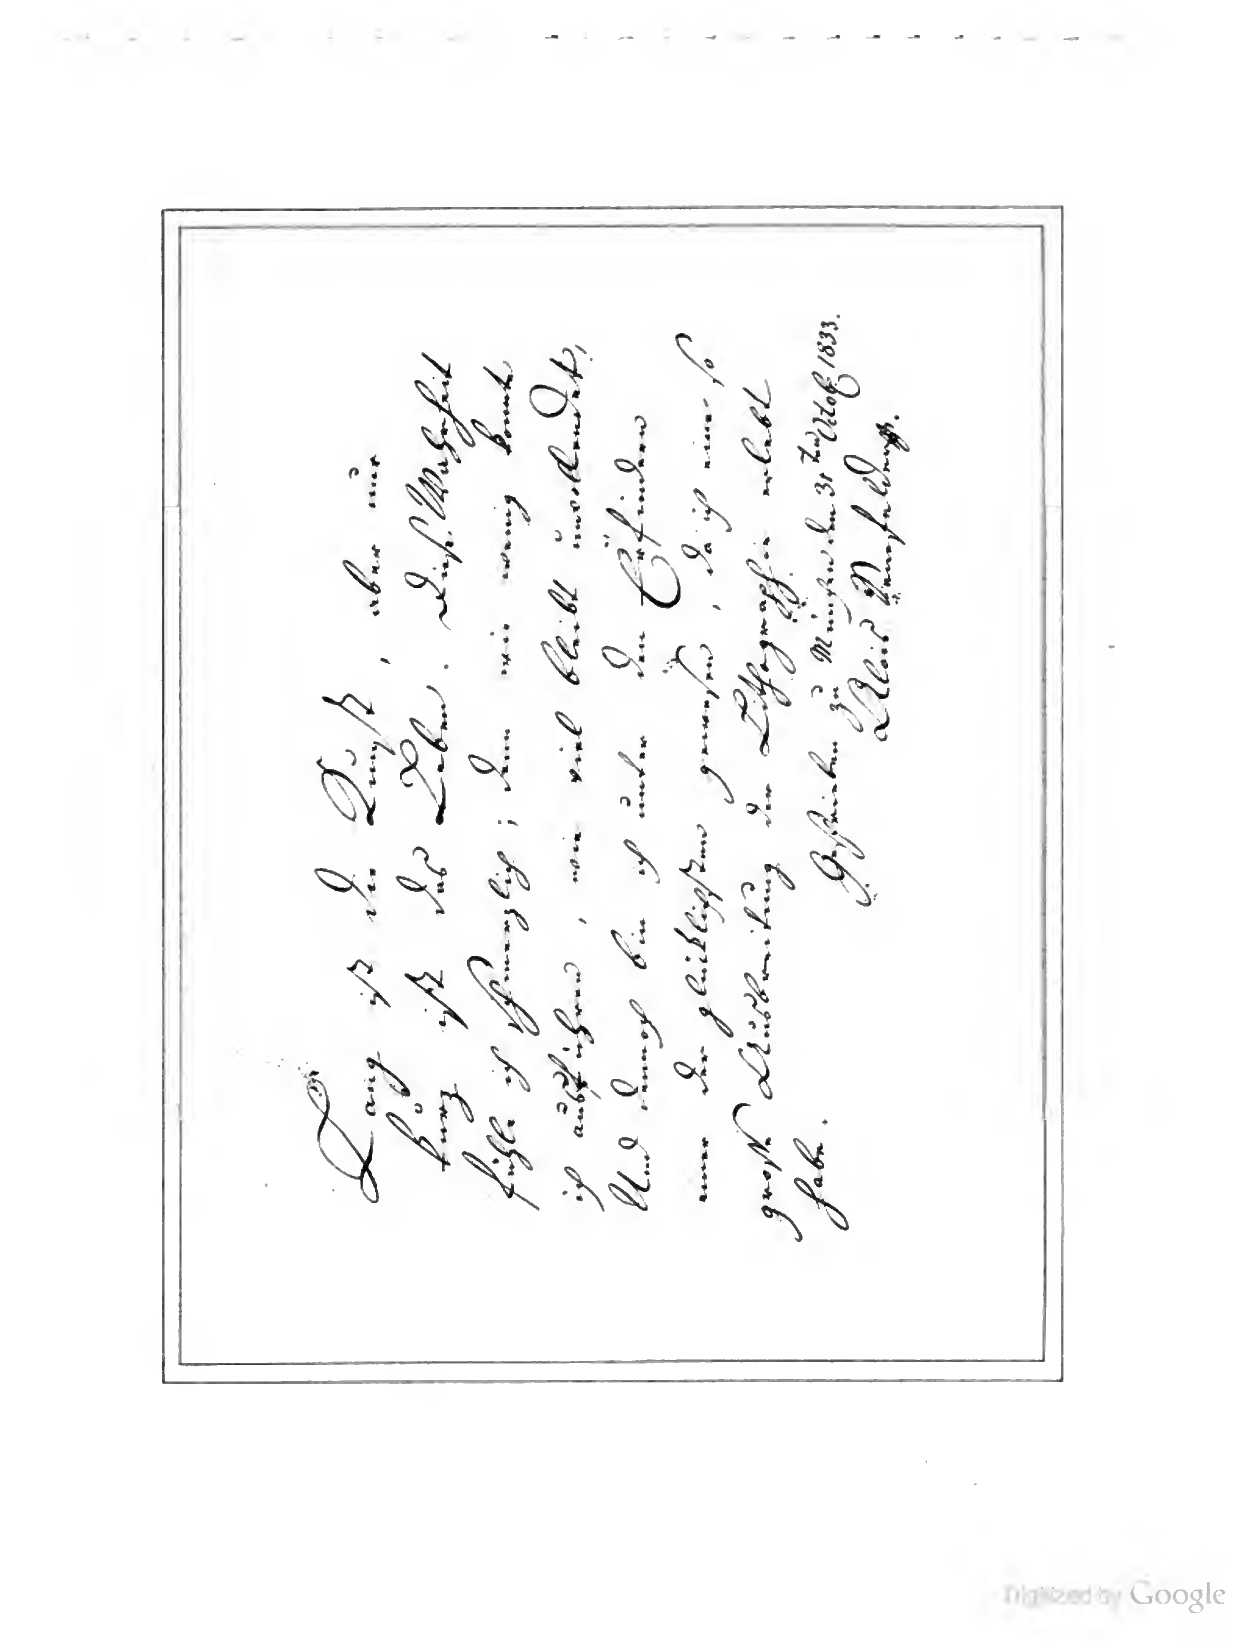 Lang ist die Kunst, aber nur
kurz ist das Leben. Diese Wahrheit
fühle ich schmerzlich; denn wie wenig konnte
ich ausführen, wie viel bleibt unvollendet,
Und dennoch bin ich unter den Erfindern
einer der glücklichsten gewesen, da ich eine so
große Ausbreitung der Lithographie erlebt
habe.
Geschrieben zu München den 31ten Octob 1833.
Alois Senefelder
Digitized by Google